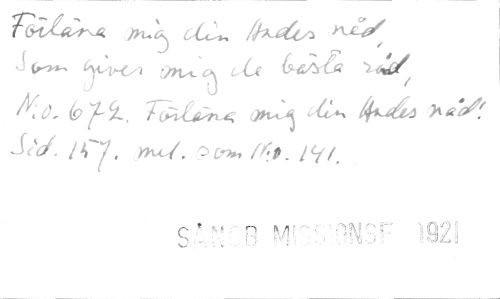 Förläna mig din Andes nåd,
Som giver mig de bästa råd,
N:o. 672. Förläna mig din Andes nåd!
Sid. 157. mel. som N:o. 141.
SÅNGB MISSIONSF 1921